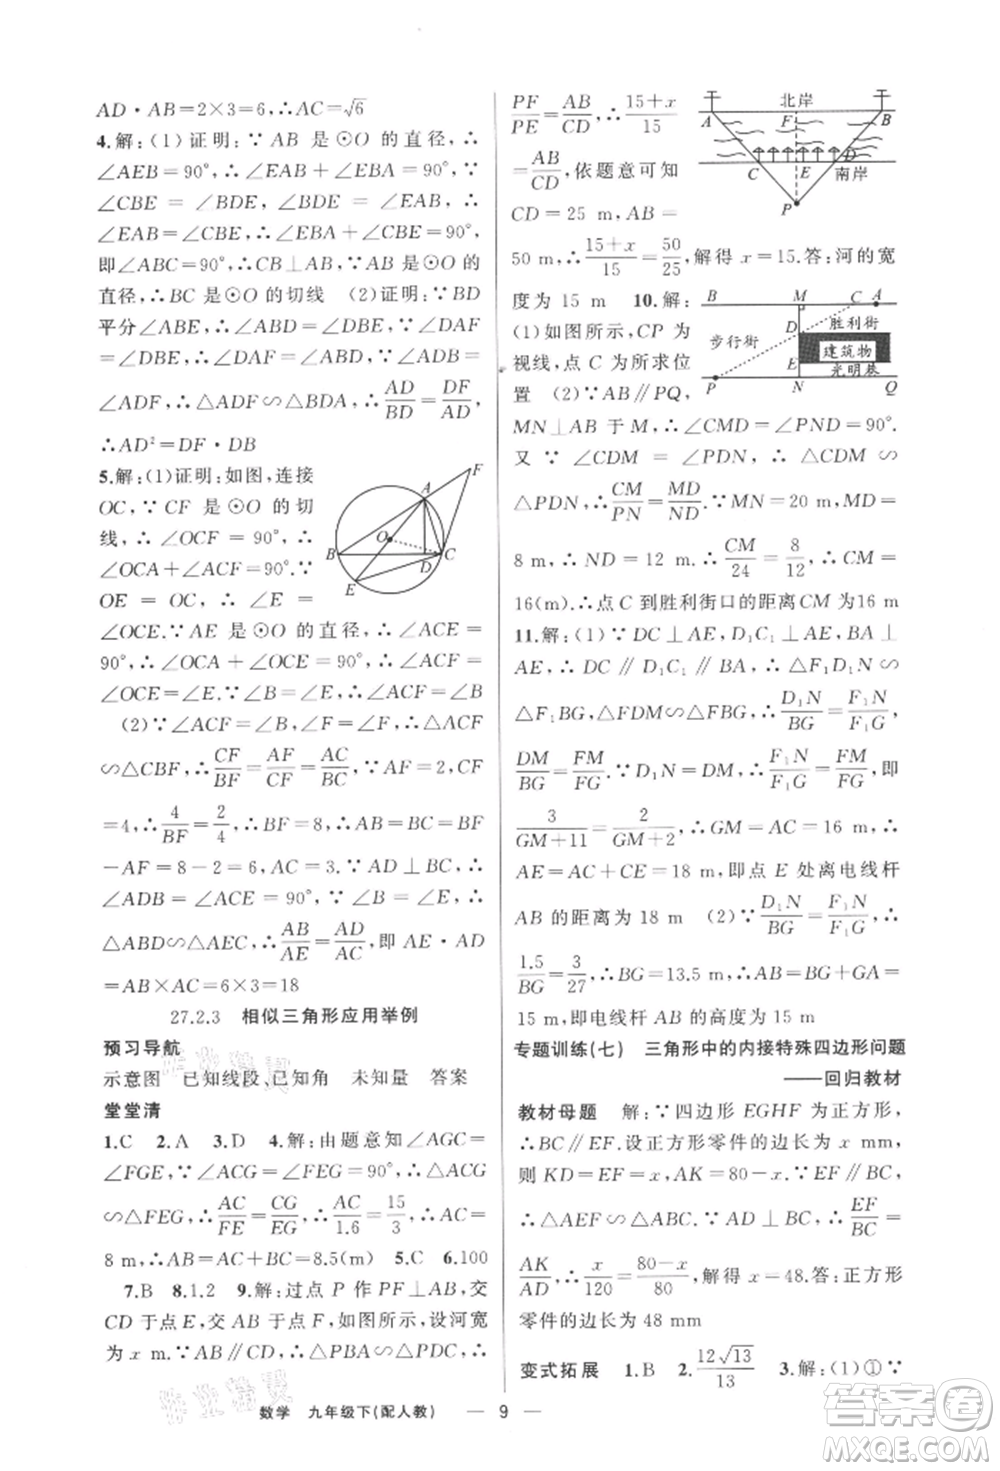 AD·AB=2×3=6,∴AC=√6
4.解:(1)证明:∵AB 是⊙O 的直径,∴
∠AEB=90°,∴∠EAB+∠EBA=90°.∵
∠CBE = ∠BDE, ∠BDE = ∠EAB, ∴
∠EAB=∠CBE,∴∠EBA+∠CBE=90°,
即∠ABC=90°,∴CB⊥AB.∵AB 是⊙O 的
直径,∴BC 是⊙O 的切线 (2)证明:∵BD
平分∠ABE,∴∠ABD=∠DBE,∵∠DAF
=∠DBE,∴∠DAF=∠ABD.∵∠ADB=
∠ADF,∴△ADF∽△BDA,∴AD/BD=DF/AD,
∴AD²=DF·DB
5.解:(1)证明:如图,连接
OC,∵CF 是⊙O 的切
线,∴∠OCF=90°,∴
∠OCA+∠ACF=90°.∵
OE = OC,∴∠E =
∠OCE.∵AE 是⊙O 的直径,∴∠ACE=
90°,∴∠OCA+∠OCE=90°,∴∠ACF=
∠OCE=∠E.∵∠B=∠E,∴∠ACF=∠B
(2)∵∠ACF=∠B,∠F=∠F,∴△ACF
∽△CBF,∴CF/BF=AF/CF=AC/BC,∵AF=2,CF
=4,∴4/BF=2/4,∴BF=8,∴AB=BC=BF
-AF=8-2=6,AC=3.∵AD⊥BC,∴
∠ADB=∠ACE=90°.∵∠B=∠E,∴
△ABD∽△AEC,∴AB/AE=AD/AC,即 AE·AD
=AB×AC=6×3=18
27.2.3 相似三角形应用举例
预习导航
示意图 已知线段,已知角 未知量 答案
堂堂清
1.C 2.A 3.D 4.解:由题意知∠AGC=
∠FGE,∵∠ACG=∠FEG=90°,∴△ACG
∽△FEG,∴AC/FE=CG/EG,∴AC/1.6=15/3,∴AC=
8 m,∴AB=AC+BC=8.5(m) 5.C 6.100
7.B 8.1.2 9.解:过点 P 作 PF⊥AB,交
CD 于点 E,交 AB 于点 F,如图所示,设河宽
为 x m.∵AB∥CD,∴△PBA∽△PDC,∴
PF/PE=AB/CD,∴(15+x)/15
=AB/CD,依题意可知
CD=25 m,AB=
50 m,∴(15+x)/15=50/25,解得 x=15.答:河的宽
度为 15 m 10.解:
(1)如图所示,CP 为
视线,点 C 为所求位
置 (2)∵AB∥PQ,
MN⊥AB 于 M,∴∠CMD=∠PND=90°.
又∵∠CDM=∠PDN,∴△CDM∽
△PDN,∴CM/PN=MD/ND.∵MN=20 m,MD=
8 m,∴ND=12 m.∴CM/24=8/12,∴CM=
16(m).∴点 C 到胜利街口的距离 CM 为16 m
11.解:(1)∵DC⊥AE,D₁C₁⊥AE,BA⊥
AE,∴DC∥D₁C₁∥BA,∴△F₁D₁N∽
△F₁BG,△FDM∽△FBG,∴D₁N/BG=F₁N/F₁G,
DM/BG=FM/FG.∵D₁N=DM,∴F₁N/F₁G=FM/FG,即
3/(GM+11)=2/(GM+2),∴GM=16 m,∴
AE=AC+CE=18 m,即点 E 处离电线杆
AB 的距离为 18 m (2)∵D₁N/BG=F₁N/F₁G,∴
1.5/BG=3/27,∴BG=13.5 m,∴AB=BG+GA=
15 m,即电线杆 AB 的高度为 15 m
专题训练(七) 三角形中的内接特殊四边形问题
——回归教材
教材母题 解:∵四边形 EGHF 为正方形,
∴BC∥EF.设正方形零件的边长为 x mm,
则 KD=EF=x,AK=80-x,∵EF∥BC,
∴△AEF∽△ABC,∵AD⊥BC,∴EF/BC=
AK/AD,∴x/120=(80-x)/80,解得 x=48.答:正方形
零件的边长为 48 mm
变式拓展 1.B 2.12√13/13 3.解:(1)①∵
北岸
A F B
C E D 南岸
P
B M C A
步行街 D 胜利街
E 建筑物
光明巷
P N Q
F
A
O
B D C
E
数学 九年级下(配人教) — 9 —
MXQE.COM